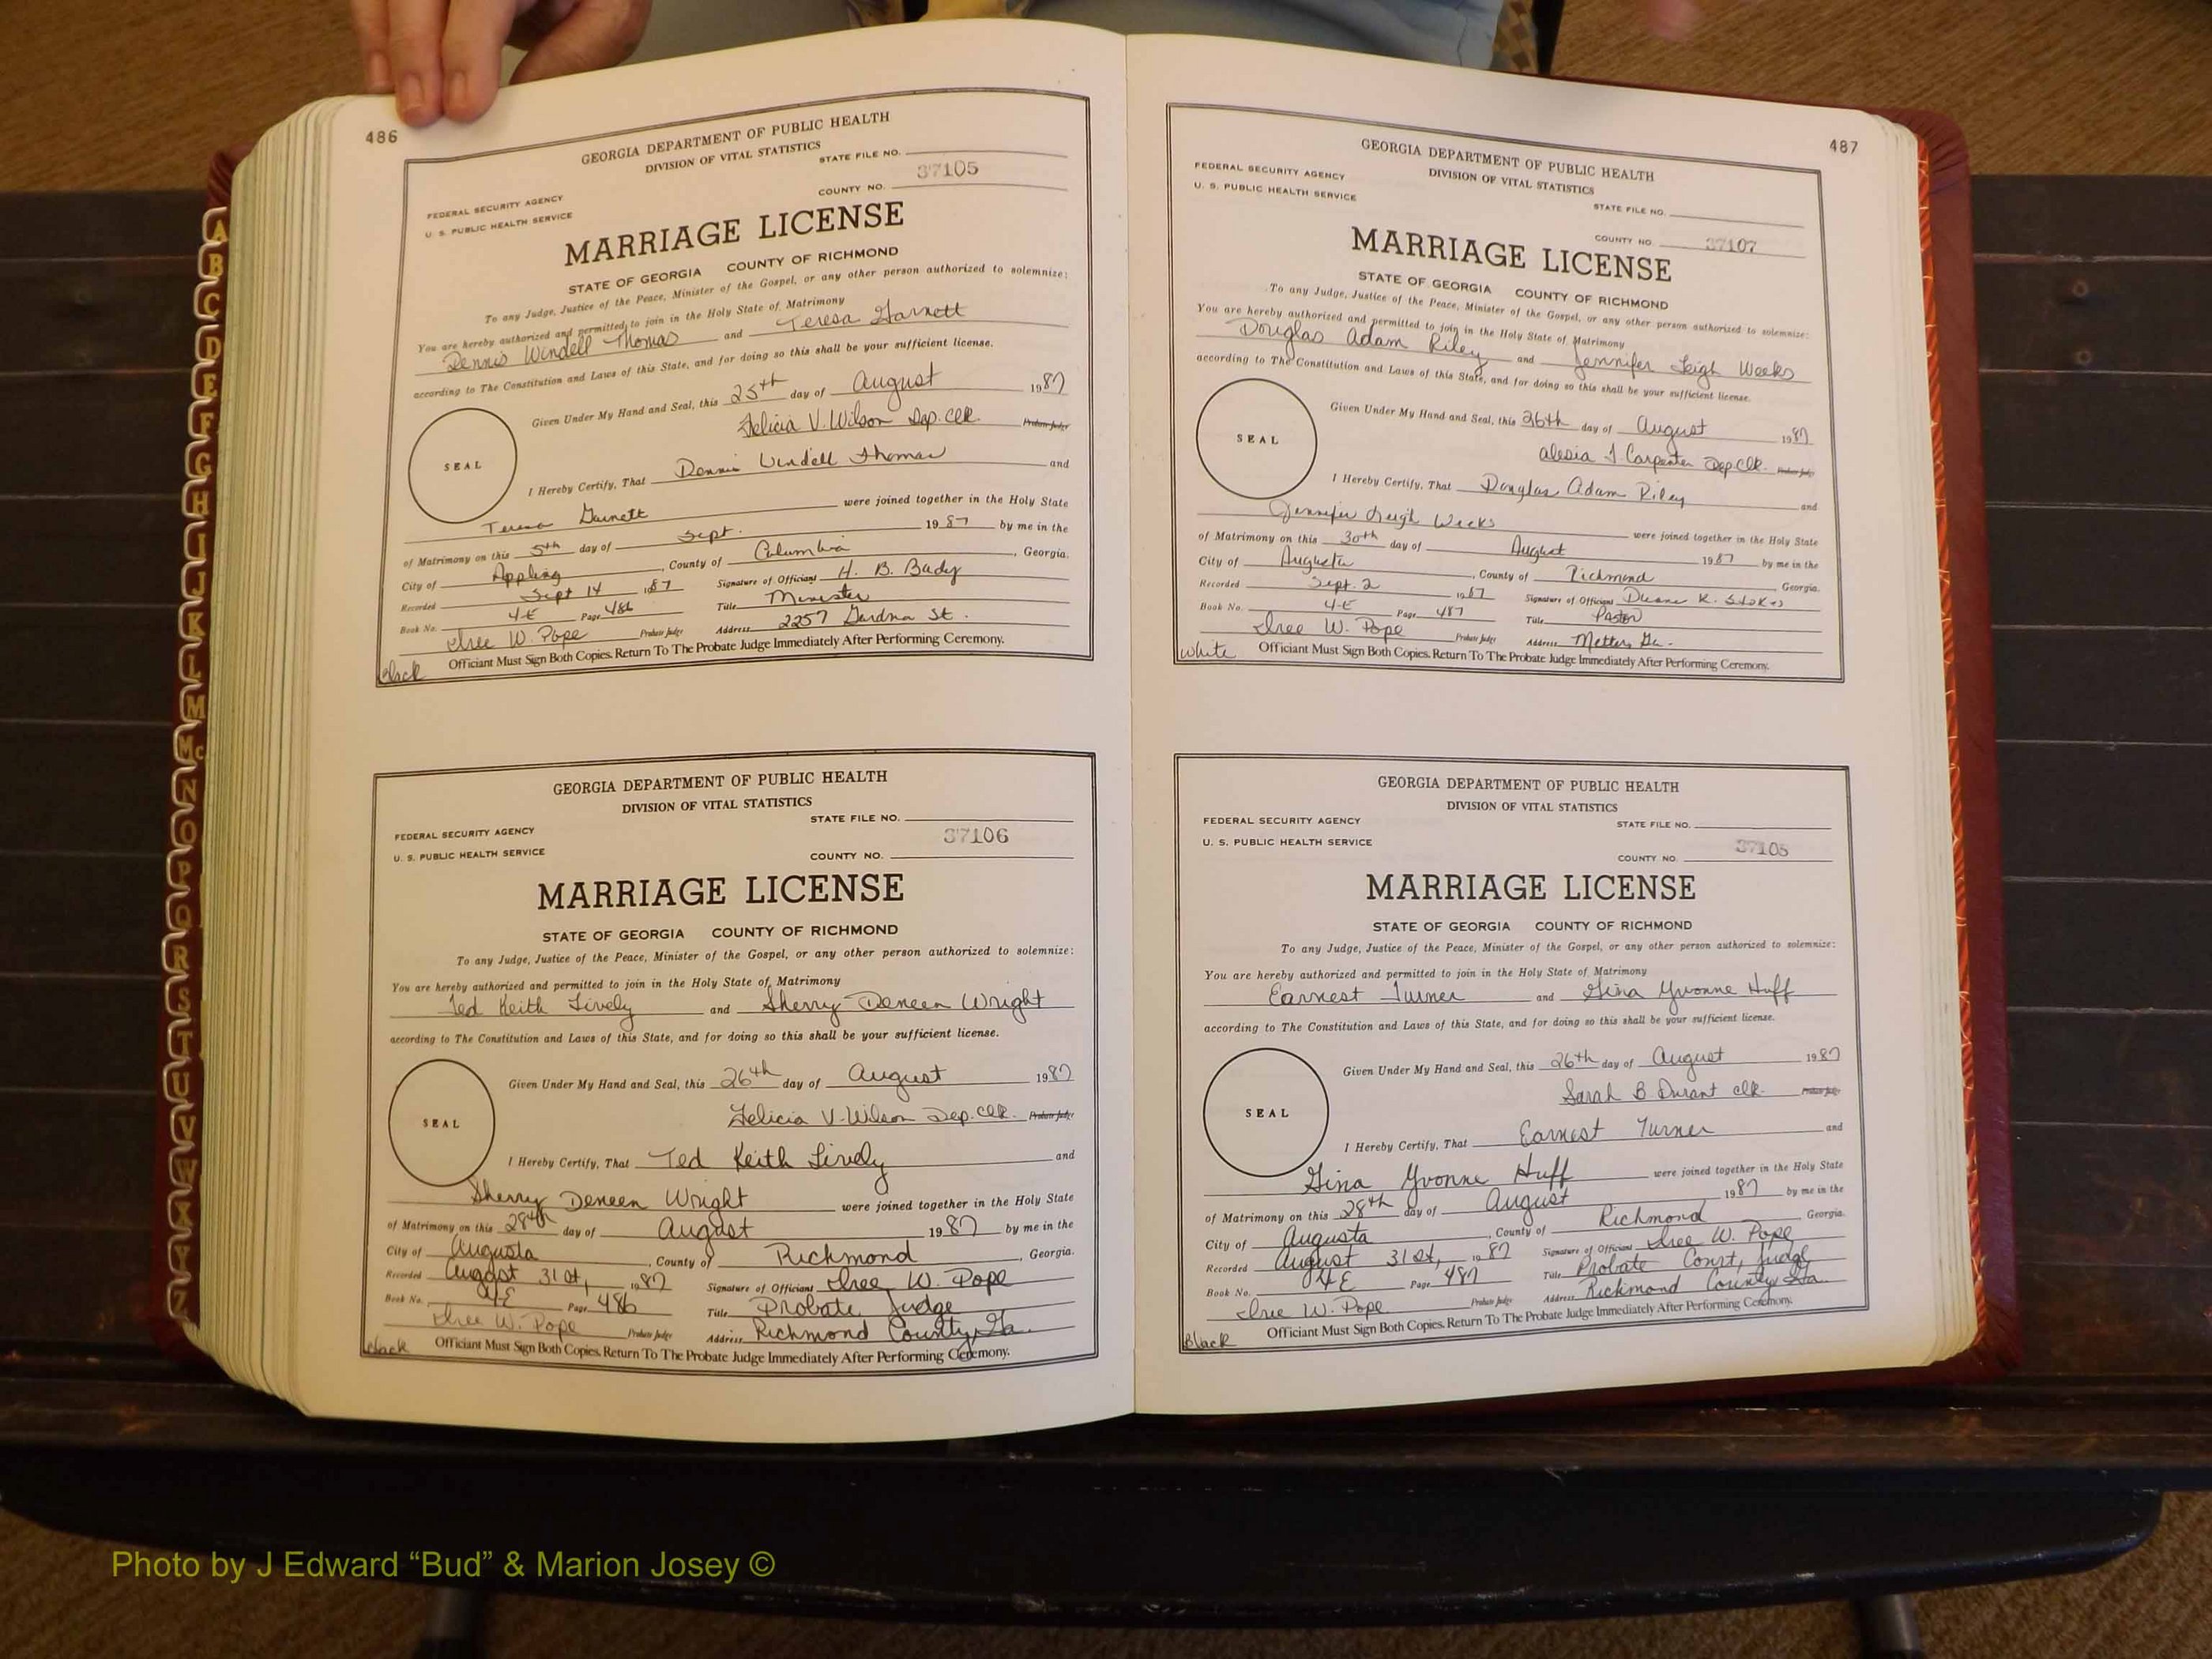 486
GEORGIA DEPARTMENT OF PUBLIC HEALTH
DIVISION OF VITAL STATISTICS
STATE FILE NO.
FEDERAL SECURITY AGENCY
U. S. PUBLIC HEALTH SERVICE
COUNTY NO. 37105
MARRIAGE LICENSE
STATE OF GEORGIA COUNTY OF RICHMOND
To any Judge, Justice of the Peace, Minister of the Gospel, or any other person authorized to solemnize:
You are hereby authorized and permitted to join in the Holy State of Matrimony
Dennis Windell Thomas and Teresa Garnett
according to The Constitution and Laws of this State, and for doing so this shall be your sufficient license.
Given Under My Hand and Seal, this 25th day of August 1987
Felicia V. Wilson Dep. Clk. Probate Judge
SEAL
I Hereby Certify, That Dennis Windell Thomas and
Teresa Garnett were joined together in the Holy State
of Matrimony on this 5th day of Sept. 1987 by me in the
City of Appling, County of Columbia, Georgia.
Recorded Sept 14 1987 Signature of Officiant H. B. Bady
Book No. 4-E Page 486 Title Minister
W. Pope Probate Judge Address 2257 St.
Black Officiant Must Sign Both Copies. Return To The Probate Judge Immediately After Performing Ceremony.
GEORGIA DEPARTMENT OF PUBLIC HEALTH
DIVISION OF VITAL STATISTICS
STATE FILE NO.
FEDERAL SECURITY AGENCY
U. S. PUBLIC HEALTH SERVICE
COUNTY NO. 37106
MARRIAGE LICENSE
STATE OF GEORGIA COUNTY OF RICHMOND
To any Judge, Justice of the Peace, Minister of the Gospel, or any other person authorized to solemnize:
You are hereby authorized and permitted to join in the Holy State of Matrimony
Ted Keith Lively and Sherry Deneen Wright
according to The Constitution and Laws of this State, and for doing so this shall be your sufficient license.
Given Under My Hand and Seal, this 26th day of August 1987
Felicia V. Wilson Dep. Clk. Probate Judge
SEAL
I Hereby Certify, That Ted Keith Lively and
Sherry Deneen Wright were joined together in the Holy State
of Matrimony on this 28th day of August 1987 by me in the
City of Augusta, County of Richmond, Georgia.
Recorded August 31st, 1987 Signature of Officiant W. Pope
Book No. 4E Page 486 Title Probate Judge
W. Pope Probate Judge Address Richmond County, Ga.
Black Officiant Must Sign Both Copies. Return To The Probate Judge Immediately After Performing Ceremony.
487
GEORGIA DEPARTMENT OF PUBLIC HEALTH
DIVISION OF VITAL STATISTICS
FEDERAL SECURITY AGENCY
U. S. PUBLIC HEALTH SERVICE
STATE FILE NO.
COUNTY NO. 37107
MARRIAGE LICENSE
STATE OF GEORGIA COUNTY OF RICHMOND
To any Judge, Justice of the Peace, Minister of the Gospel, or any other person authorized to solemnize:
You are hereby authorized and permitted to join in the Holy State of Matrimony
Douglas Adam Riley and Jennifer Leigh Weeks
according to The Constitution and Laws of this State, and for doing so this shall be your sufficient license.
Given Under My Hand and Seal, this 26th day of August 1987
Alesia J Carpenter Dep. Clk. Probate Judge
SEAL
I Hereby Certify, That Douglas Adam Riley and
Jennifer Leigh Weeks were joined together in the Holy State
of Matrimony on this 30th day of August 1987 by me in the
City of Augusta, County of Richmond Georgia.
Recorded Sept. 2 1987 Signature of Officiant Duane K.
Book No. 4-E Page 487 Title Pastor
W. Pope Probate Judge Address Metter, Ga.
White Officiant Must Sign Both Copies. Return To The Probate Judge Immediately After Performing Ceremony.
GEORGIA DEPARTMENT OF PUBLIC HEALTH
DIVISION OF VITAL STATISTICS
FEDERAL SECURITY AGENCY
STATE FILE NO.
U. S. PUBLIC HEALTH SERVICE
COUNTY NO.
MARRIAGE LICENSE
STATE OF GEORGIA COUNTY OF RICHMOND
To any Judge, Justice of the Peace, Minister of the Gospel, or any other person authorized to solemnize:
You are hereby authorized and permitted to join in the Holy State of Matrimony
Earnest Turner and Gina Yvonne Huff
according to The Constitution and Laws of this State, and for doing so this shall be your sufficient license.
Given Under My Hand and Seal, this 26th day of August 1987
Sarah B Durant clk. Probate Judge
SEAL
I Hereby Certify, That Earnest Turner and
Gina Yvonne Huff were joined together in the Holy State
of Matrimony on this 28th day of August 1987 by me in the
City of Augusta, County of Richmond Georgia.
Recorded August 31st, 1987 Signature of Officiant W. Pope
Book No. 4E Page 487 Title Probate Court, Judge
W. Pope Probate Judge Address Richmond County, Ga.
Black Officiant Must Sign Both Copies. Return To The Probate Judge Immediately After Performing Ceremony.
A
B
C
D
E
F
G
H
I
J
K
L
M
Mc
N
O
P
Q
R
S
T
U
V
W
X
Y
Z
Photo by J Edward “Bud” & Marion Josey ©